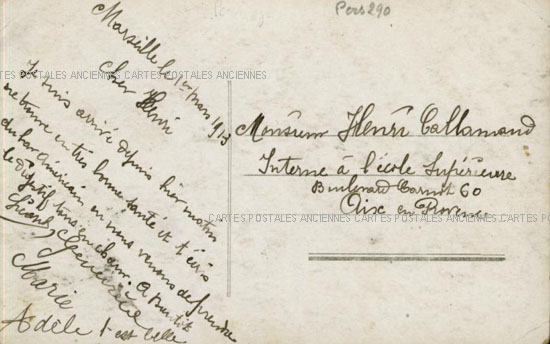 Pers 290
Marseille le 1er mars 1913
Cher Henri
Je suis arrivé depuis hier matin
me trouve en très bonne santé et t'écris
du bar Américain où nous venons de prendre
le digestif tous en chœur. A bientôt
Geneviève
Marie
Adèle
est belle
Monsieur Henri Callamand
Interne à l'école Supérieure
Boulevard Carnot 60
Aix en Provence
CARTES POSTALES ANCIENNES CARTES POSTALES ANCIENNES
CARTES POSTALES ANCIENNES CARTES POSTALES ANCIENNES CARTES POSTALES